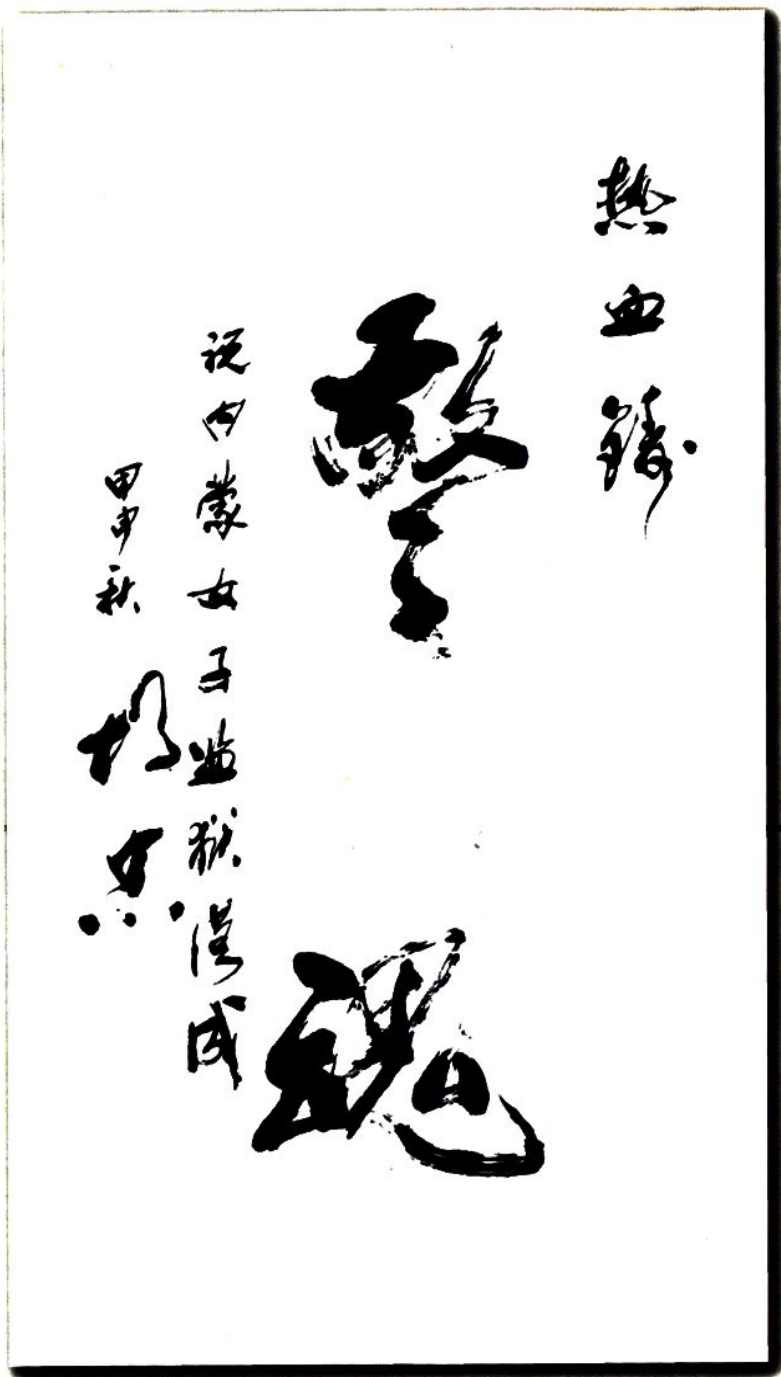 热血铸
警魂
祝内蒙女子监狱落成
甲申秋